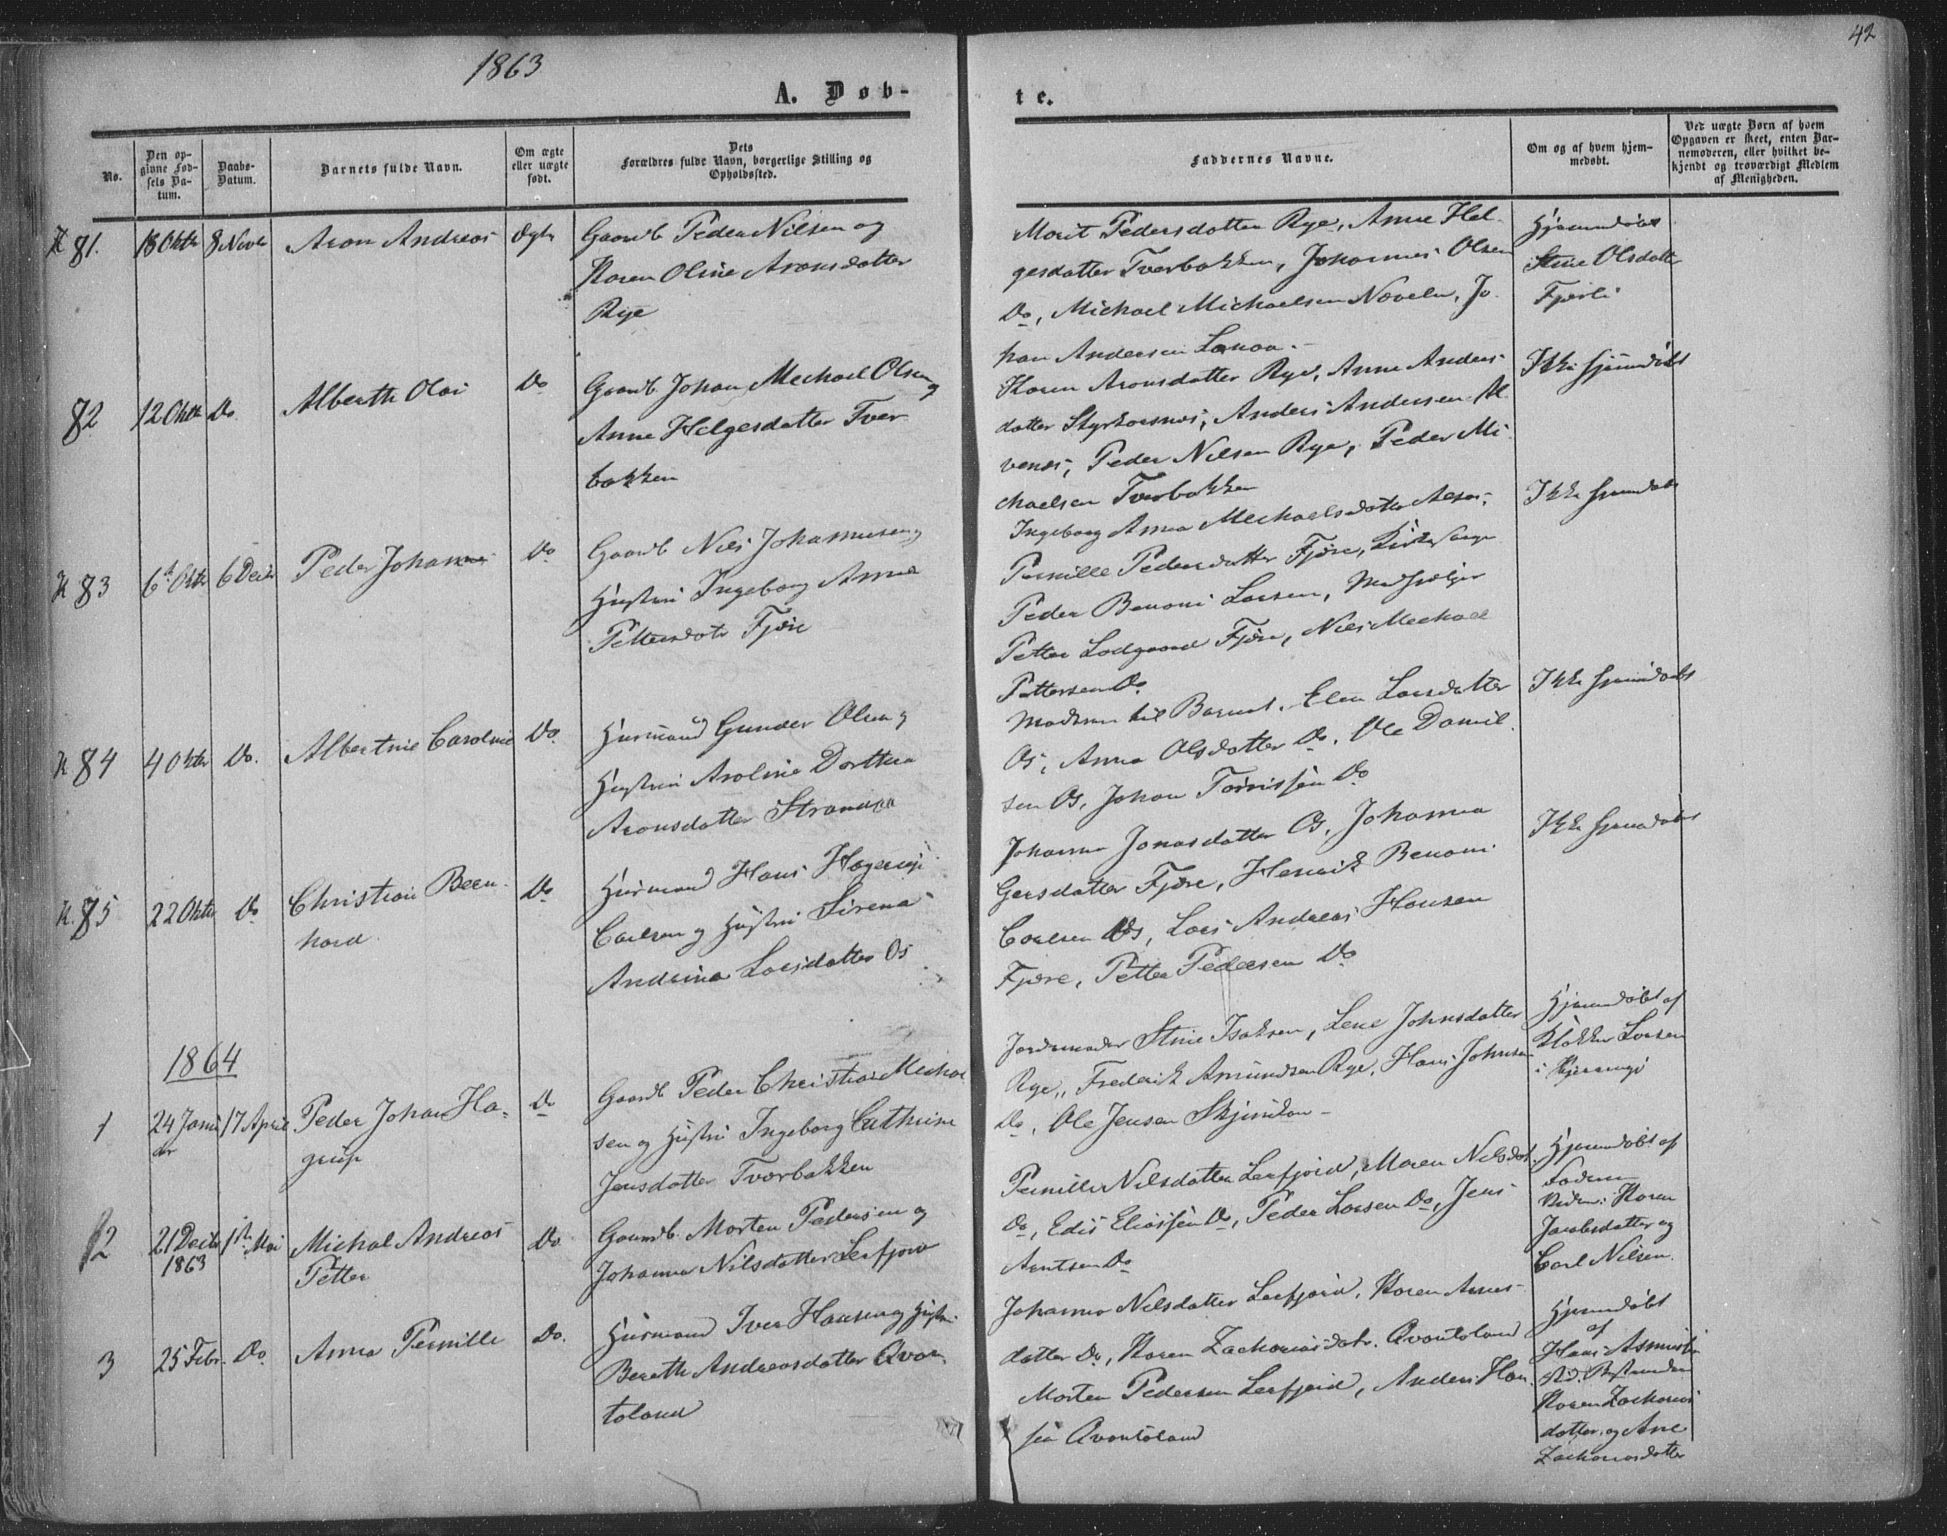 1863
42
A. Døb-
te.
No.
Den op-
givne Fød-
sels Da-
tum.
Daabs-
Datum.
Barnets fulde Navn.
Om ægte
eller uægte
født.
Dets
Forældres fulde Navn, borgerlige Stilling og
Opholdssted.
Faddernes Navne.
Om og af hvem hjem-
medøbt.
Ved uægte Børn af hvem
Opgaven er skeet, enten Bar-
nemoderen, eller hvilket be-
kjendt og troværdigt Medlem
af Menigheden.
81.
18 Oktbr
8 Novbr
Aron Andreas
Ægte
Gaardb Peder Nilsen og
Karen Oline Aronsdatter
Rye
Marit Pedersdatter Rye, Anne Hel-
gesdatter Tverbakken, Johannes Olsen
Do, Michael Michaelsen Næveln, Jo-
han Andersen Lanaa.
Hjemmedøbt
Stine Olsdatter
Fjærli
82
12 Oktbr
Do
Alberth Olai
Do
Gaardb Johan Mechael Olsen og
Anne Helgesdatter Tver
bakken
Karen Aronsdatter Rye, Anne Anders-
datter Styrkesnes, Anders Andersen
venes, Peder Nilsen Rye, Peder Mi-
chaelsen Tverbakken
Ikke hjemdøbt
83
6te Oktbr
6 Decbr
Peder Johannes
Do
Gaardb Nils Johannesen og
Hustru Ingeborg Anna
Pettersdatr Fjære
Ingeborg Anna Mechaelsdatter
Pernille Pedersdatter Fjære, Kirkesanger
Peder Benoni Larsen, Medhjelper
Petter Lodgaard Fjære, Nils Mechael
Pettersen Do
Ikke hjemdøbt
84
4 Oktbr
Do.
Albertine Caroline
Do.
Husmand Gunder Olsen og
Hustru Arolina Dorthea
Aronsdatter Strandaa
Moderen til Barnet, Elen Larsdatter
Os, Anna Olsdatter Do, Ole Daniel-
sen Os, Johan Tørrissen Do
Ikke hjemdøbt
85
22 Oktbr
Do
Christian Bern-
hard
Do
Husmand Hans Hagerup
Carlsen og Hustru Sirena
Andrina Larsdatter Os
Johanna Jonasdatter Os, Johanna
Gersdatter Fjære, Henrik Benoni
Carlsen Os, Lars Andreas Hansen
Fjære, Petter Pedersen Do
Ikke hjemdøbt
1864
1
24 Janu
ar
17 April
Peder Johan Ha-
gerup
Do
Gaardb Peder Christian Michal
sen og Hustru Ingeborg Cathrine
Jensdatter Tverbakken
Jordemoder Stine Isaksen, Lene Johnsdatter
Rye, Frederik Amundsen Rye, Hans Johnsen
Do, Ole Jensen Skjeridan
Hjemmedøbt af
Klokker Larsen
i Kjerringø
2
21 Decbr
1863
1ste Mai
Michal Andreas
Petter
Do.
Gaardb. Morten Pedersen og
Johanna Nilsdatter Leefjord
Pernille Nilsdatter Leefjord, Maren Nilsdat.
Do, Edis Eliassen Do, Peder Larsen Do, Jens
Arntsen Do
Hjemmedøbt af
Faderen
Vidner: Karen
Jacobsdatter og
Carl Nilsen.
3
25 Febr.
Do.
Anna Pernille
Do.
Husmand Iver Hansen og Hustru
Berethe Andreasdatter Qvan-
toland
Johanna Nilsdatter Leefjord, Karen Arnes-
datter Do, Karen Zachariasdatr. Qvantoland
Morten Pedersen Leefjord, Anders Han-
sen Qvantoland
Hjemmedøbt
af
Hans Asmussen
Karen Zacharias
datter og Ane
Zachariasdatter